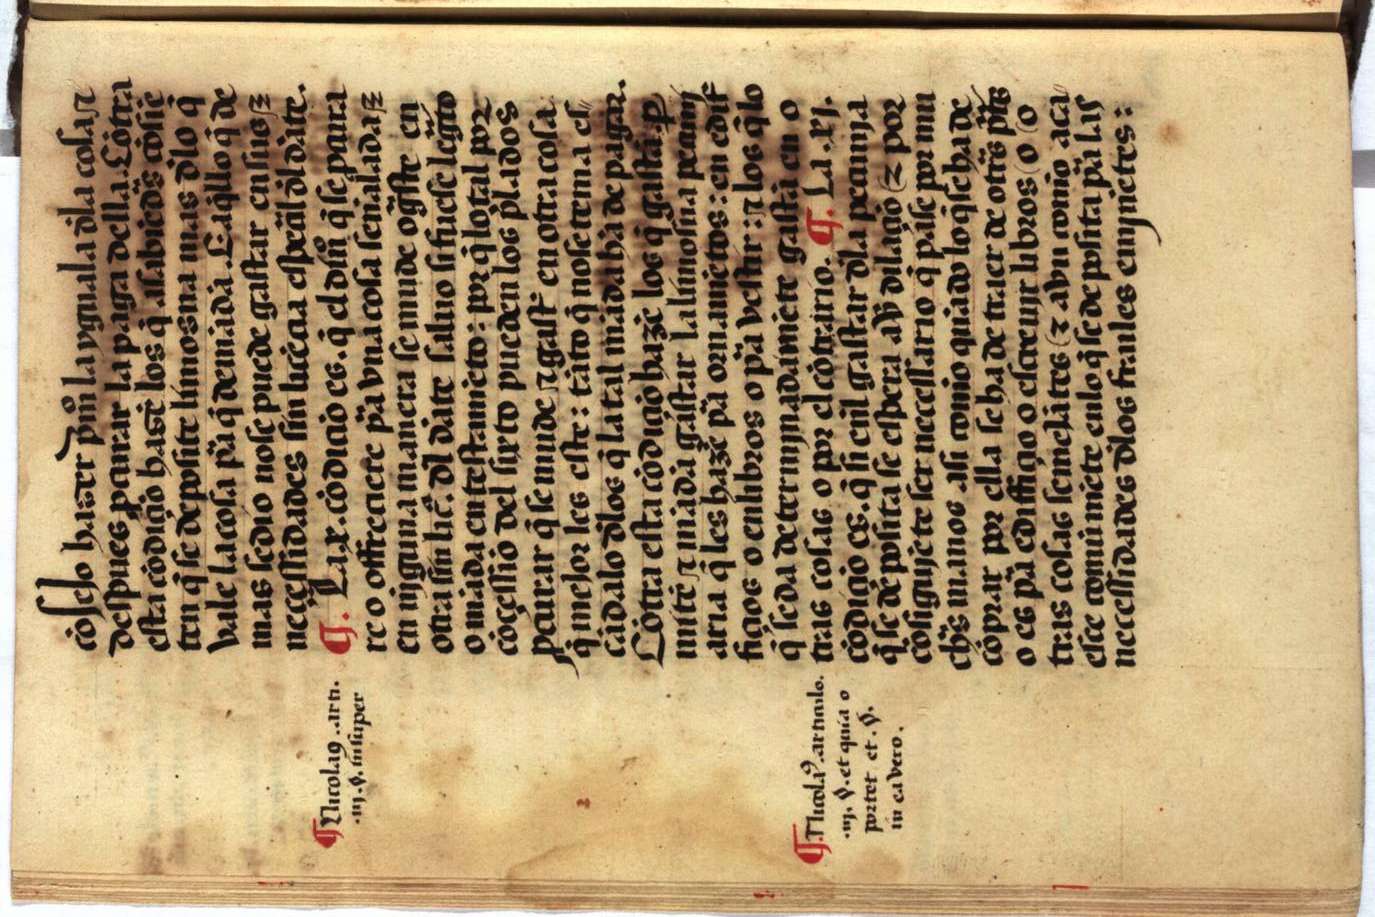 cõsejo hazer pmº la ygual a d̃la cosa ⁊
despues pcurar la paga della. Cõtra
esta cõdiçiõ hazẽ los q̃ a sabiẽdas cõsiẽ
ten q̃ se deposite limosna mas d̃ lo q̃
vale la cosa pã q̃ demãdã. Ca aq̃llo q̃ de
mas se dio no se puede gastar en sus
neçessidades sin liçẽçia espeçial d̃l dãte.
¶. La .x. cõdiçiõ es. q̃ el dsñº q̃ se para
re o offreciere pã vna cosa señalada
en nigũa manera se mude o gaste en
otra sin liçª. d̃l dãte saluo si fuese legato
o mãda en testamẽto: por q̃ lo tal por
cõçessiõ del sixto pueden los p̃lados
pcurar q̃ se mude ⁊ gaste en otra cosa
q̃ mejor les este: tãto q̃ no se tema es
cãdalo d̃los q̃ la tal mãda hã de pagar.
Cõtra esta cõdiçiõ hazẽ los q̃ gastã. p
mitẽ ⁊ mãdã gastar la limosna pecunj
aria q̃ les hazẽ pã ornamẽtos: en edifi
fiçios o en libros o pã vestir: ⁊ los q̃ lo
q̃ se da determjnadamẽte gastã en o
tras cosas o por el cõtrario. ¶. La .xj.
cõdiçiõ es. q̃ si en el gastar d̃la pecunja
q̃ se deposita se espera aũ dilaçiõ ⁊ por
cõsiguiẽte ser neçessario q̃ pase por mu
chas manos asi como quãdo lo q̃ se ha de
cõprar por ella se ha de traer de otras ptes
o es pã edifficio o escreuir libros (o
tras cosas semejãtes (⁊ avn como aca
esçe comũmẽte en lo q̃ se deposita pã las
neçessidades d̃los frailes enfermjtes:
¶ Nicolaꝰ. arti.
.iij. §. insuper
¶. Nicolaꝰ. articulo.
.iij. §. et quia o
portet et .§.
in ea vero.